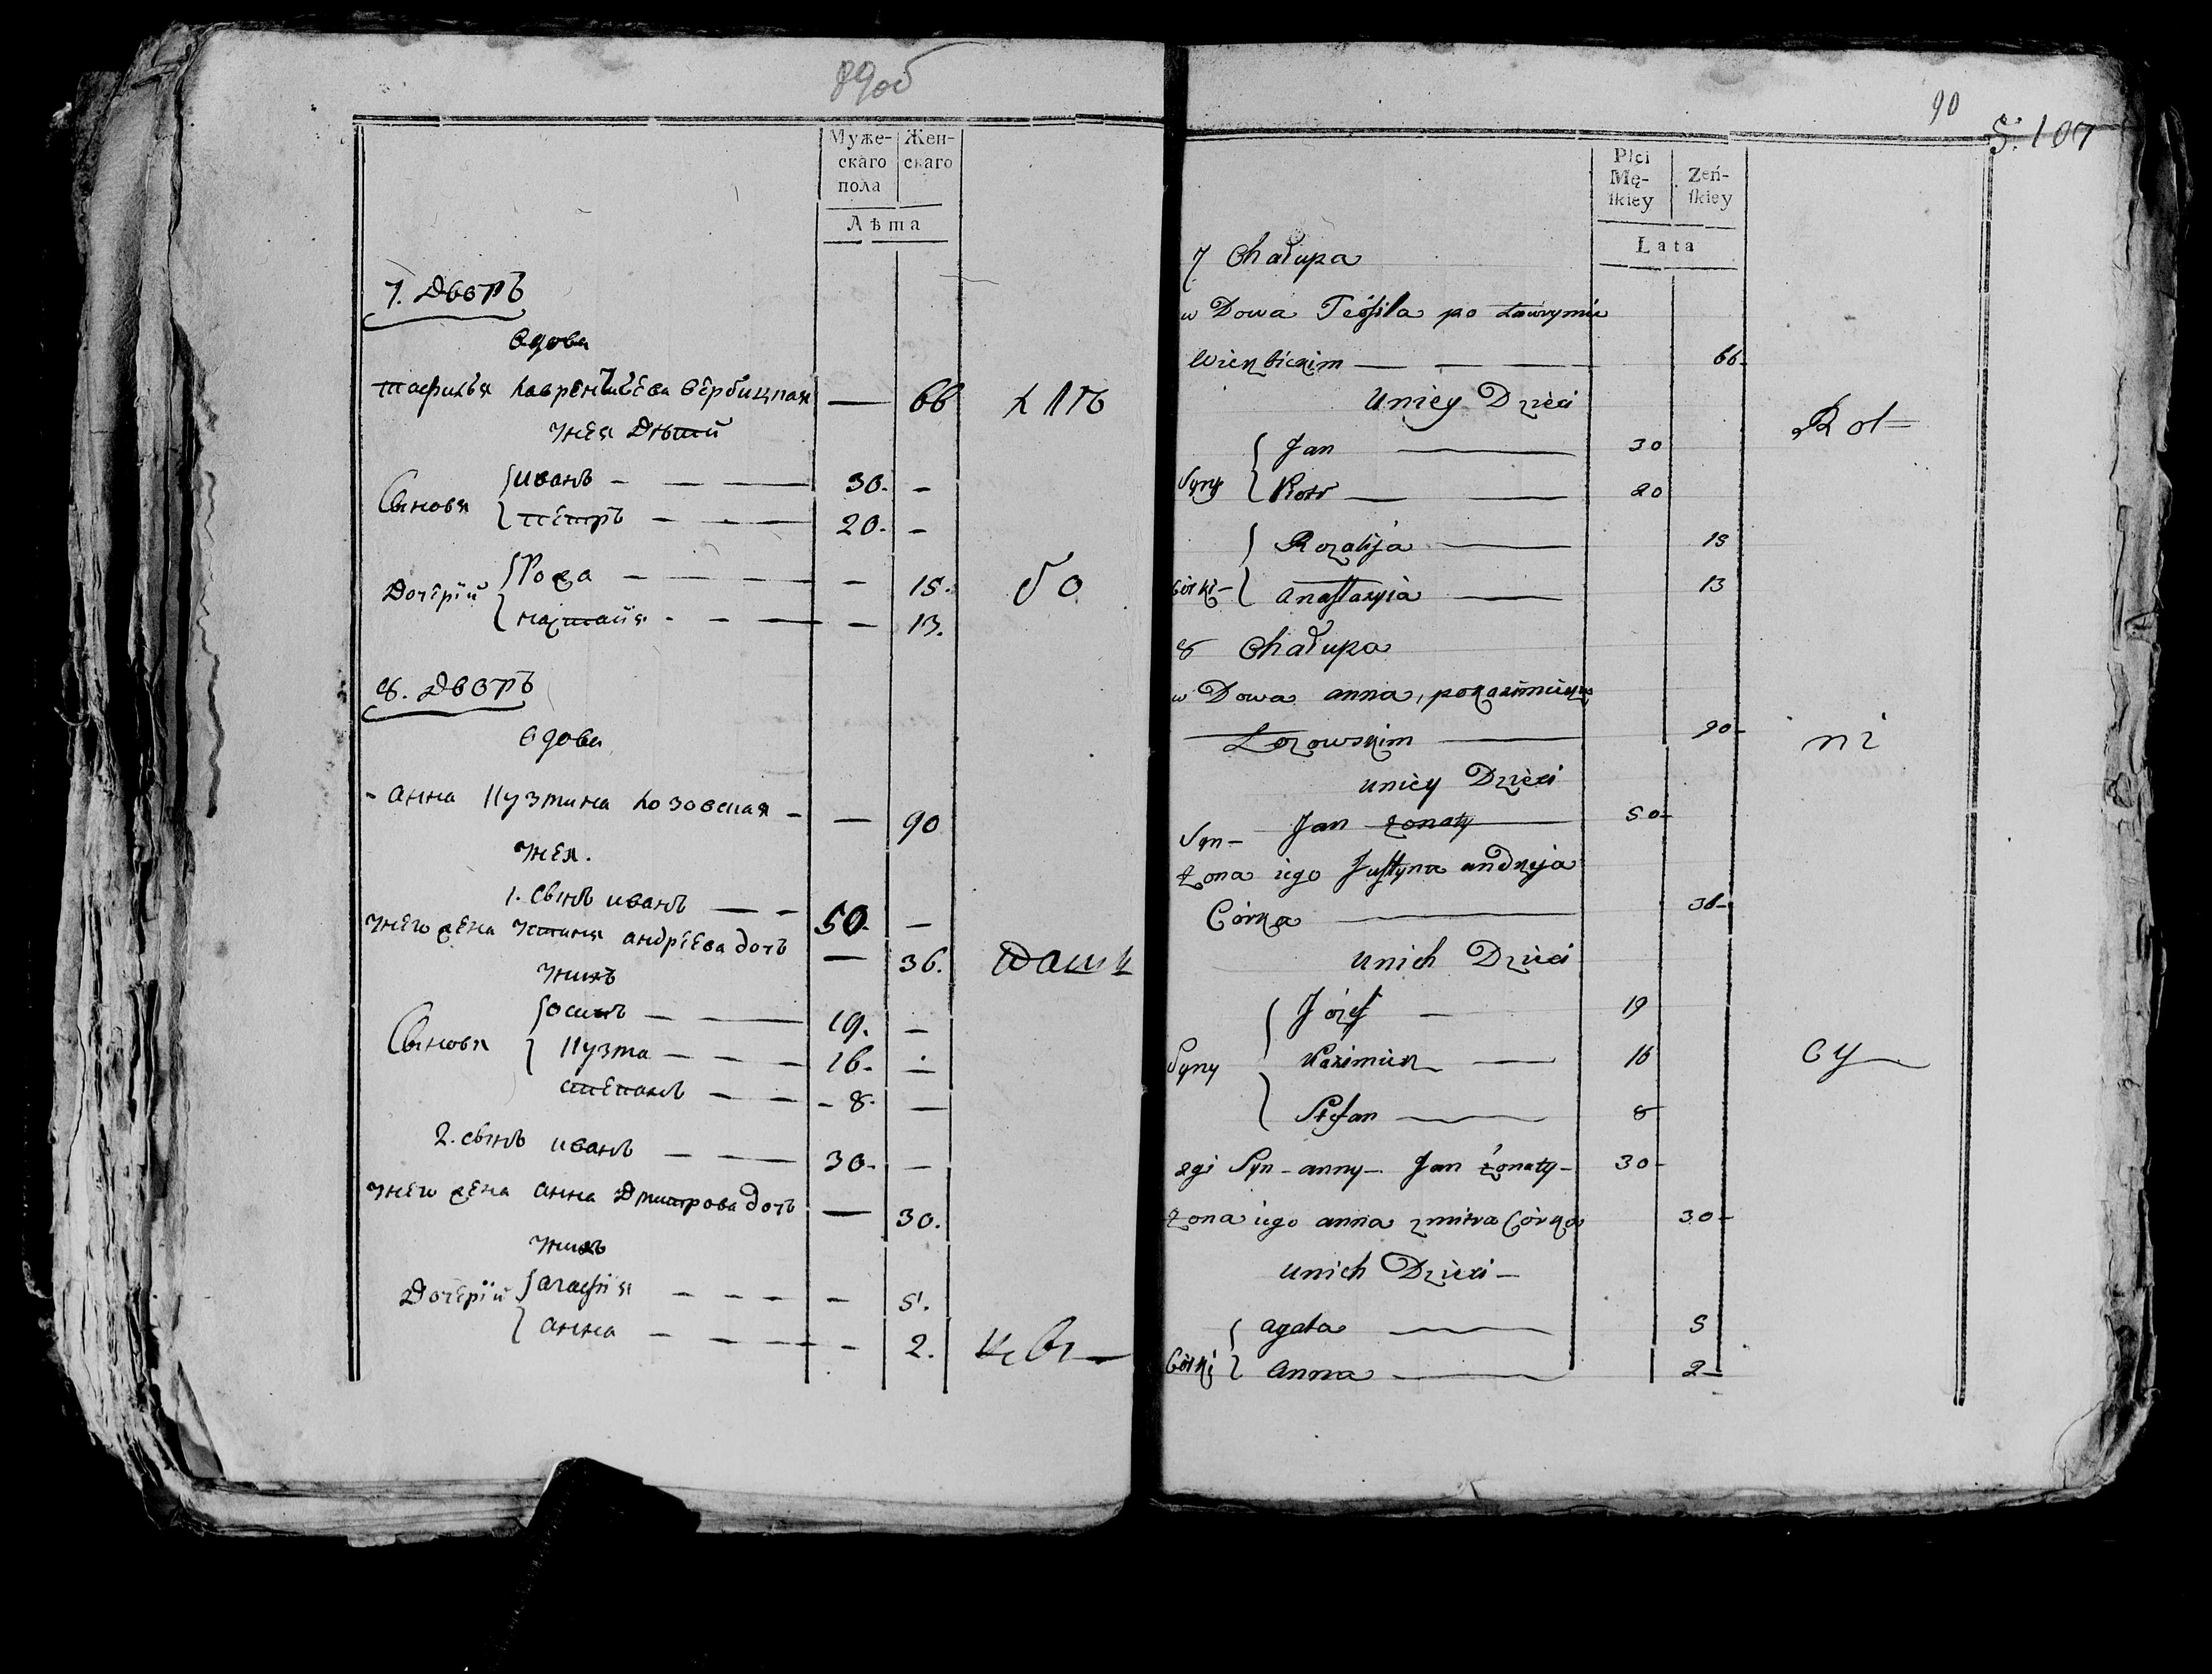 89об
Муже-
скаго
пола
Жен-
скаго
Лѣта
7. Дворъ
вдова
тофилья лаврентьева вербицкая — 66
унея дѣтй
Сыновя
иванъ — 30. —
петръ — 20. —
Дочерiй
Роза — — 15.
настасия — — 13.
8. Дворъ
вдова
анна кузмина лозовская — — 90
унея.
1. сынъ иванъ — 50. —
унего жена устиня андрѣева дочь — 36.
унихъ
Сыновя
осипъ — 19. —
кузма — 16. —
степанъ — 8. —
2. сынъ иванъ — 30. —
унего жена анна дмитрова дочь — 30.
унихъ
Дочерiй
агафiя — — 5.
анна — — 2.
90
S. 107
Płci
Mę-
skiey
Zeń-
skiey
Lata
7 Chałupa
w Dowa Teófila po Lawrynie
Wierzbickim — 66
Uniey Dzieci
Syny
Jan — 30
Piotr — 20
Córki
Rozalija — 15
anastazyia — 13
8 Chałupa
w Dowa anna, po kazimierzu
Łozowskim — 90
uniey Dzieci
Syn — Jan żonaty — 50
żona iego Justyna andrzeja
Córka — 36
unich Dzieci
Syny
Józef — 19
Kazimierz — 16
Stefan — 8
2gi Syn — anny — Jan żonaty — 30
żona iego anna zmitra Córka 30
unich Dzieci —
Córki
agata — 5
anna — 2